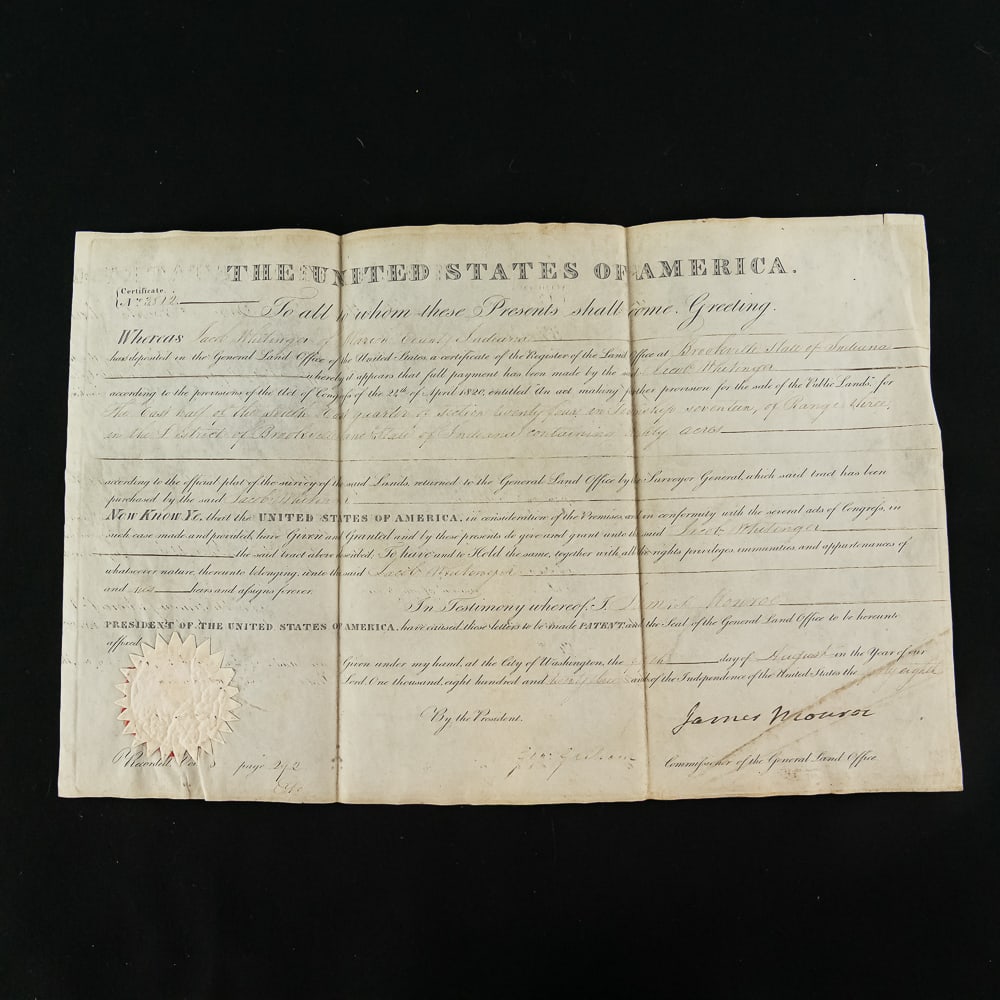 THE UNITED STATES OF AMERICA.
Certificate.
No. 3512
To all to whom these Presents shall come, Greeting.
Whereas Jacob Whitinger of Marion County Indiana
has deposited in the General Land Office of the United States, a certificate of the Register of the Land Office at Brookville State of Indiana
whereby it appears that full payment has been made by the said Jacob Whitinger
according to the provisions of the Act of Congress of the 24th of April 1820, entitled "An act making further provision for the sale of the Public Lands," for
the East half of the South East quarter of section twenty four, in Township seventeen, of Range three,
in the District of Brookville and State of Indiana containing eighty acres
according to the official plat of the survey of the said Lands, returned to the General Land Office by the Surveyor General, which said tract has been
purchased by the said Jacob Whitinger
Now Know Ye, that the UNITED STATES OF AMERICA, in consideration of the Premises, and in conformity with the several acts of Congress, in
such case made and provided, have Given and Granted and by these presents do give and grant unto the said Jacob Whitinger
the said tract above described; To have and to Hold the same, together with all the rights, privileges, immunities, and appurtenances of
whatsoever nature, thereunto belonging, unto the said Jacob Whitinger
and his heirs and assigns forever.
In Testimony whereof, I, James Monroe
PRESIDENT OF THE UNITED STATES OF AMERICA, have caused these letters to be made PATENT, and the Seal of the General Land Office to be hereunto
affixed.
Given under my hand, at the City of Washington, the day of August in the Year of our
Lord, One thousand, eight hundred and and of the Independence of the United States the forty eighth
James Monroe
By the President.
Commissioner of the General Land Office.
Recorded, Vol. page 292